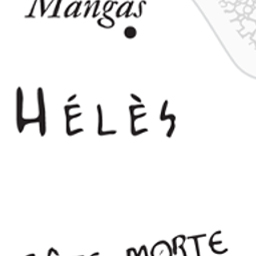 Mangas
HÉLÈS
MORTE